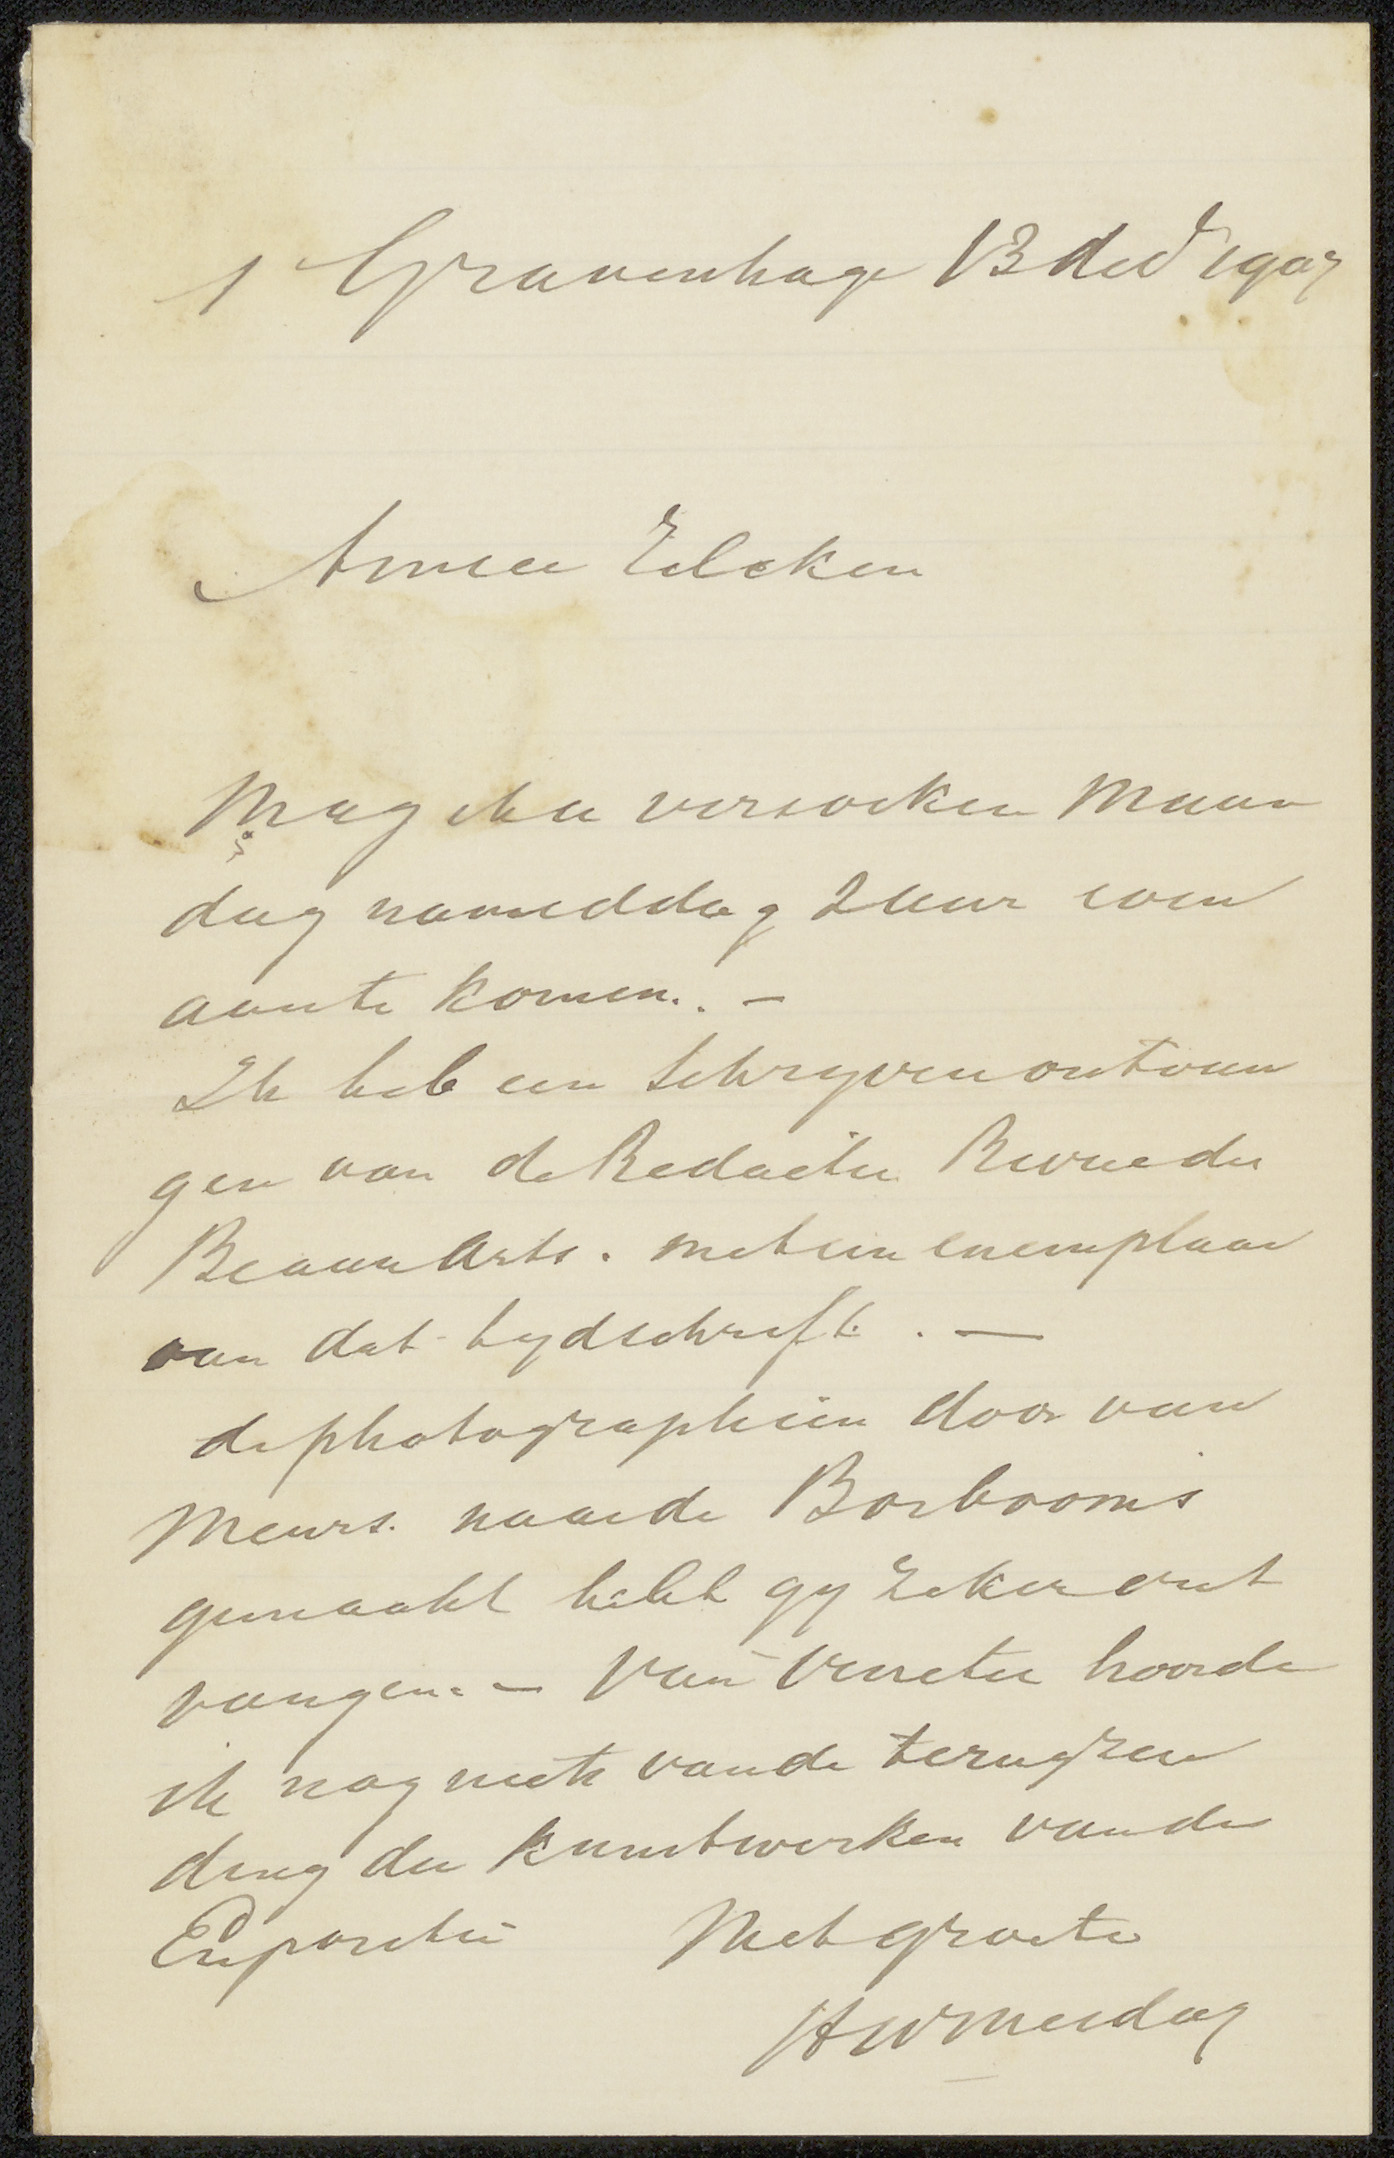 s Gravenhage 13 dec 1907
Amice Zilcken
Mag ik u verzoeken Maan
dag namiddag 2 uur even
aan te komen. . —
Ik heb een schryven ontvan
gen van de Redactie Revue des
Beaux Arts. met een exemplaar
van dat tydschrift. . —
de photographieen door van
Meurs. naar de Bosbooms
gemaakt hebt gy zeker ont
vangen. — Van Venetie hoorde
ik nog niets van de terugzen
ding der Kunstwerken van de
Expositie Met groete
HW Mesdag